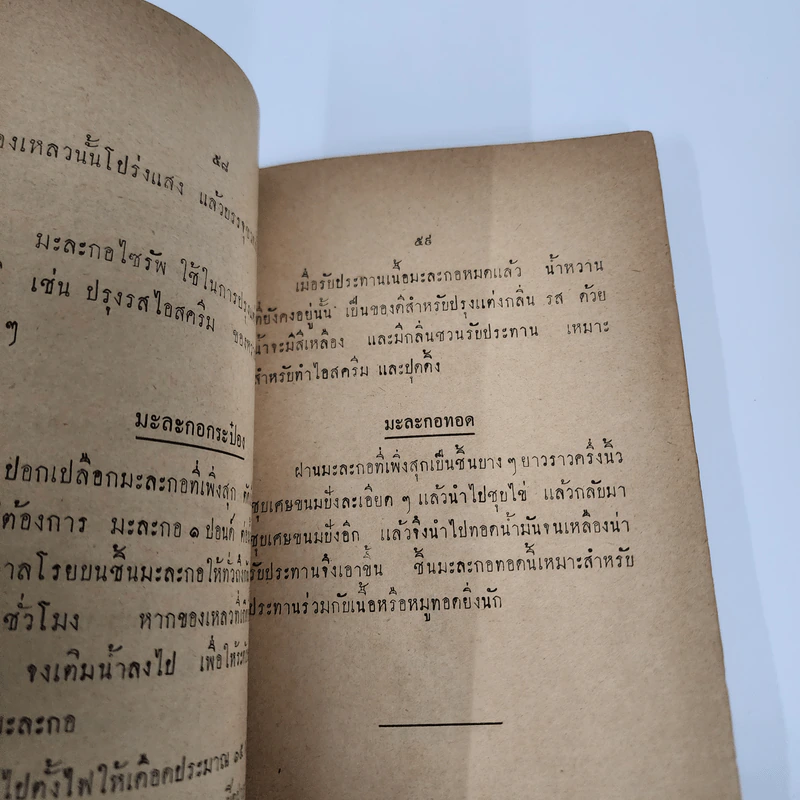 ๕๘
องเหลวนั้นโปร่งแสง แล้วบรรจุขวด
มะละกอไซรัพ ใช้ในการปรุง
เช่น ปรุงรสไอสครีม ของ
ๆ
มะละกอกระป๋อง
ปอกเปลือกมะละกอที่เพิ่งสุก
ต้องการ มะละกอ ๑ ปอนด์
าลโรยบนชิ้นมะละกอให้ทั่วถึง
ชั่วโมง หากของเหลวที่
จงเติมน้ำลงไป เพื่อให้
มะละกอ
ไปตั้งไฟให้เดือดประมาณ
๕๙
เมื่อรับประทานเนื้อมะละกอหมดแล้ว น้ำหวาน
ที่ยังคงอยู่นั้น เป็นของดีสำหรับปรุงแต่งกลิ่น รส ด้วย
น้ำจะมีสีเหลือง และมีกลิ่นชวนรับประทาน เหมาะ
สำหรับทำไอสครีม และปุดดิ้ง
มะละกอทอด
ฝานมะละกอที่เพิ่งสุกเป็นชิ้นบาง ๆ ยาวราวครึ่งนิ้ว
ชุบเศษขนมปังละเอียด ๆ แล้วนำไปชุบไข่ แล้วกลับมา
ชุบเศษขนมปังอีก แล้วจึงนำไปทอดน้ำมันจนเหลืองน่า
รับประทานจึงเอาขึ้น ชิ้นมะละกอทอดนี้เหมาะสำหรับ
ประทานร่วมกับเนื้อหรือหมูทอดยิ่งนัก